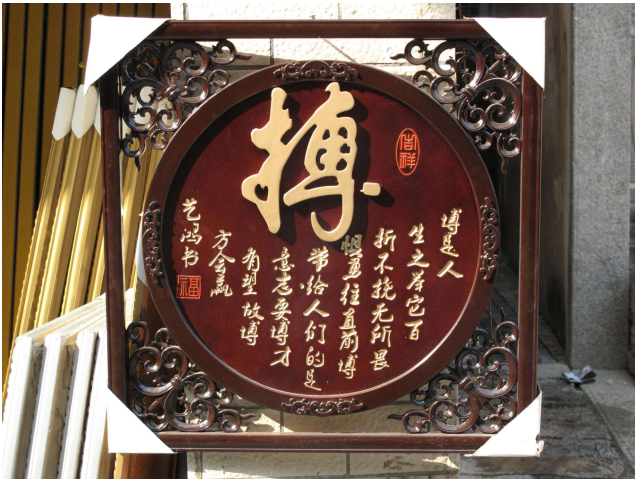 搏
吉祥
博是人
生之岸它百
折不挠无所畏
惧勇往直前博
带给人们的是
意志要博才
有望故博
方会赢
艺鸿书
福